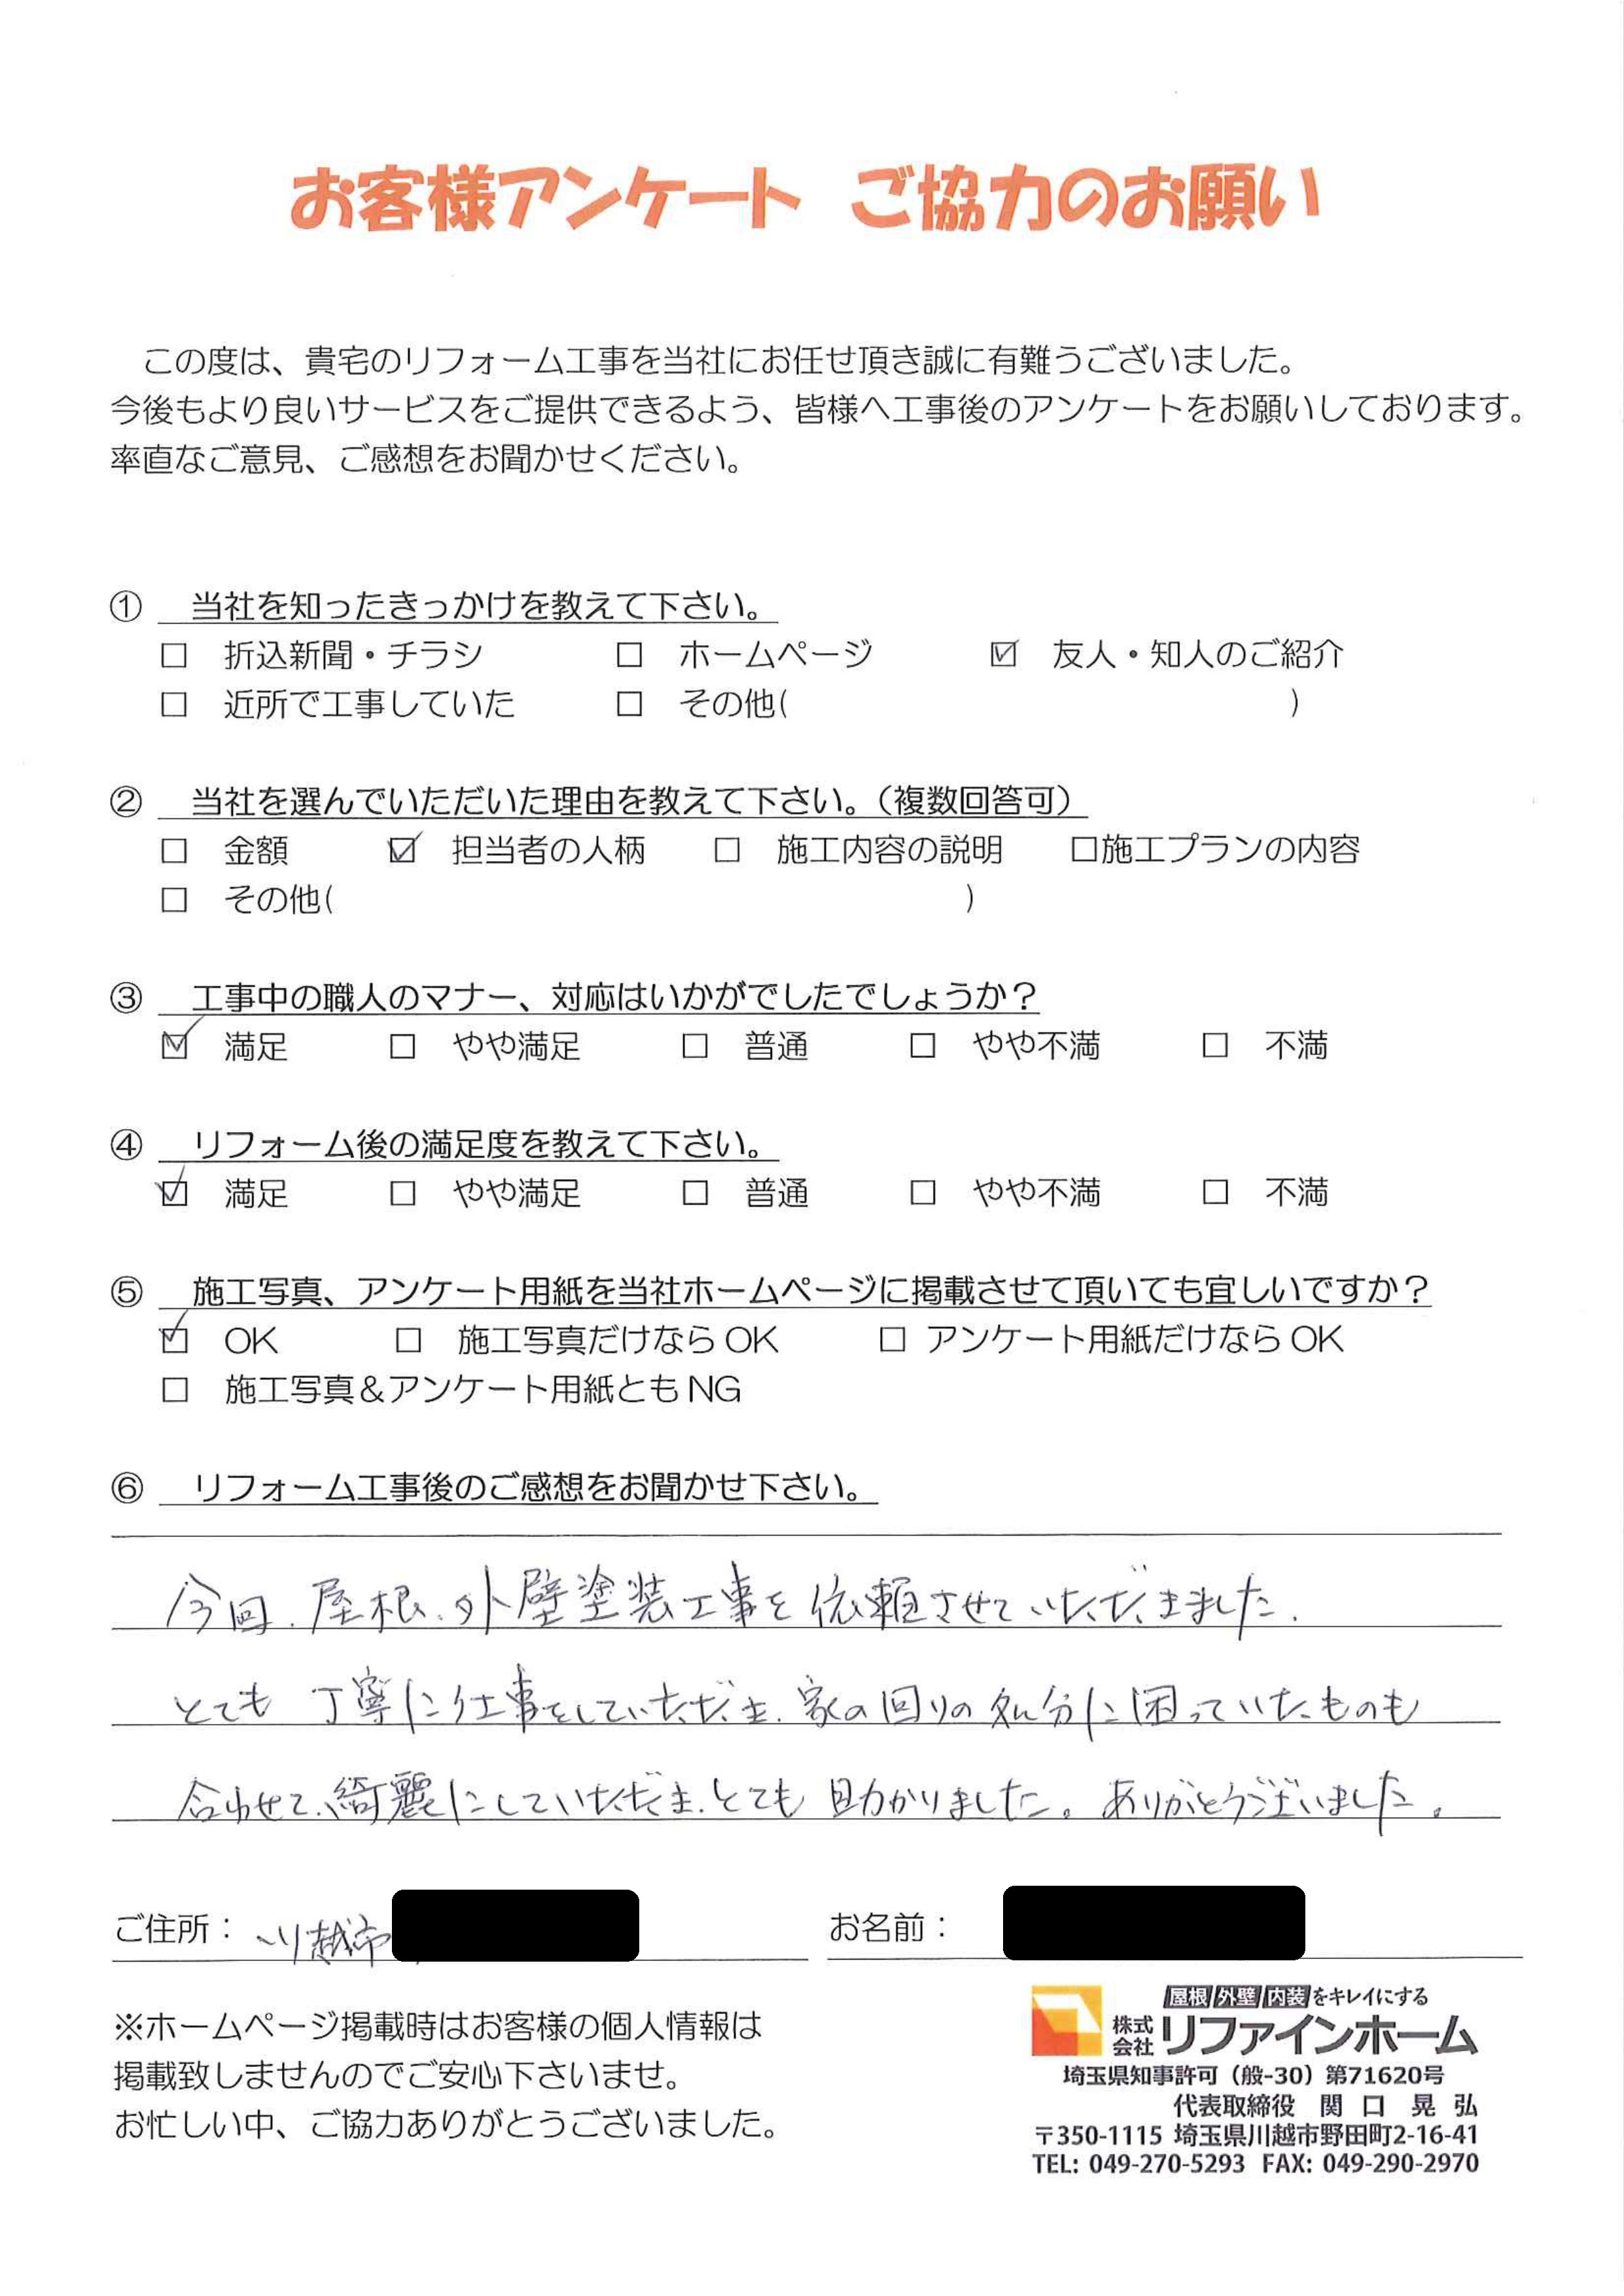 お客様アンケート ご協力のお願い
この度は、貴宅のリフォーム工事を当社にお任せ頂き誠に有難うございました。
今後もより良いサービスをご提供できるよう、皆様へ工事後のアンケートをお願いしております。
率直なご意見、ご感想をお聞かせください。
① 当社を知ったきっかけを教えて下さい。
□ 折込新聞・チラシ □ ホームページ ☑ 友人・知人のご紹介
□ 近所で工事していた □ その他( )
② 当社を選んでいただいた理由を教えて下さい。（複数回答可）
□ 金額 ☑ 担当者の人柄 □ 施工内容の説明 □施工プランの内容
□ その他( )
③ 工事中の職人のマナー、対応はいかがでしたでしょうか？
☑ 満足 □ やや満足 □ 普通 □ やや不満 □ 不満
④ リフォーム後の満足度を教えて下さい。
☑ 満足 □ やや満足 □ 普通 □ やや不満 □ 不満
⑤ 施工写真、アンケート用紙を当社ホームページに掲載させて頂いても宜しいですか？
☑ OK □ 施工写真だけならOK □ アンケート用紙だけならOK
□ 施工写真＆アンケート用紙ともNG
⑥ リフォーム工事後のご感想をお聞かせ下さい。
今回、屋根、外壁塗装工事を依頼させていただきました。
とても 丁寧に仕事をしていただき、家の回りの処分に困っていたものも
合わせて、綺麗にしていただき、とても 助かりました。ありがとうございました。
ご住所： 川越市 お名前：
※ホームページ掲載時はお客様の個人情報は
掲載致しませんのでご安心下さいませ。
お忙しい中、ご協力ありがとうございました。
屋根 外壁 内装 をキレイにする
株式会社 リファインホーム
埼玉県知事許可（般-30）第71620号
代表取締役 関口 晃弘
〒350-1115 埼玉県川越市野田町2-16-41
TEL: 049-270-5293 FAX: 049-290-2970